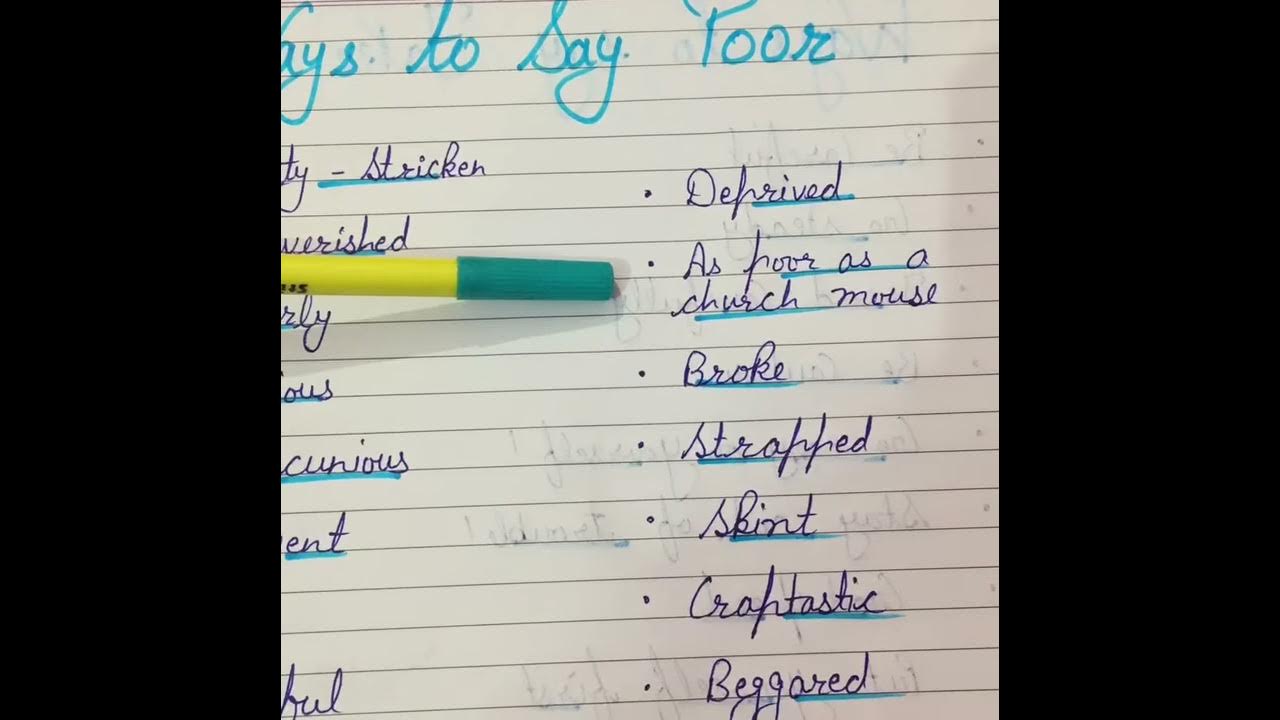 ays to Say Poor
ty - Stricken
verished
rly
ous
cunious
ent
ful
· Deprived
· As poor as a
church mouse
· Broke
· Strapped
· Skint
· Craptastic
· Beggared